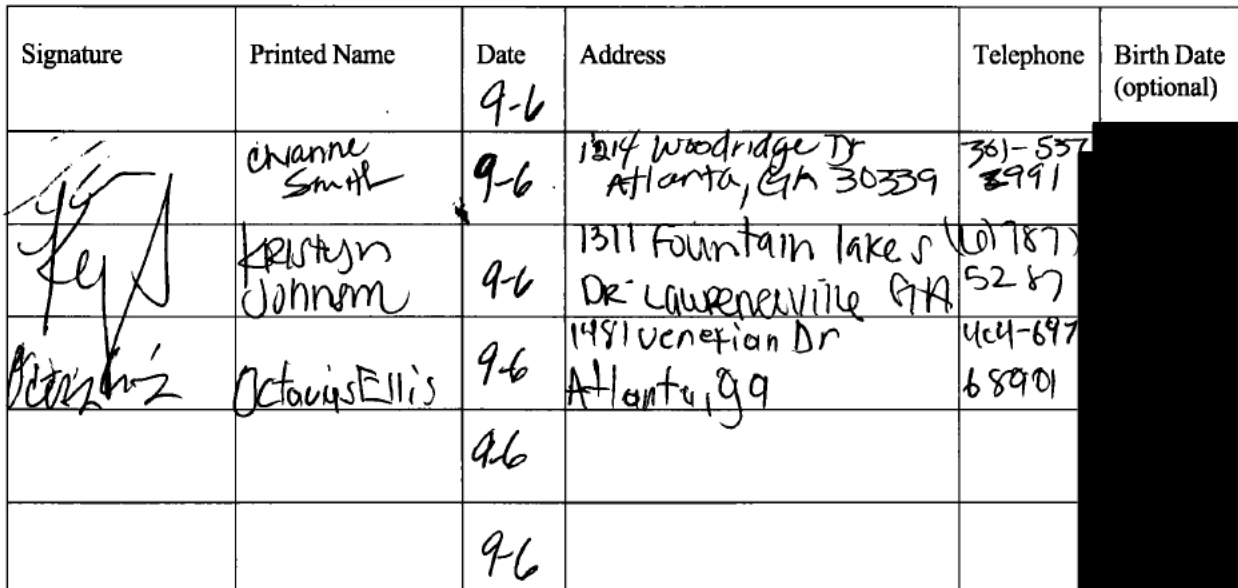 Signature Printed Name Date Address Telephone Birth Date
(optional)
9-6
Chianne
Smith
9-6
1214 Woodridge Dr
Atlanta, GA 30339
361-537
3991
Kristyn
Johnson
9-6
1311 Fountain lakes
DR Lawrenceville GA
5287
Octavius Ellis
9-6
1481 Venetian Dr
Atlanta, ga
404-697
68901
9-6
9-6